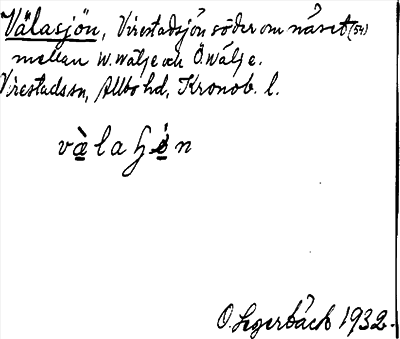 Välasjön, Virestadsjön söder om näset (54)
mellan W. Wälje och Ö. Wälje.
Virestads sn, Allbo hd, Kronob. l.
välaʃön
O. Segerbäck 1932.